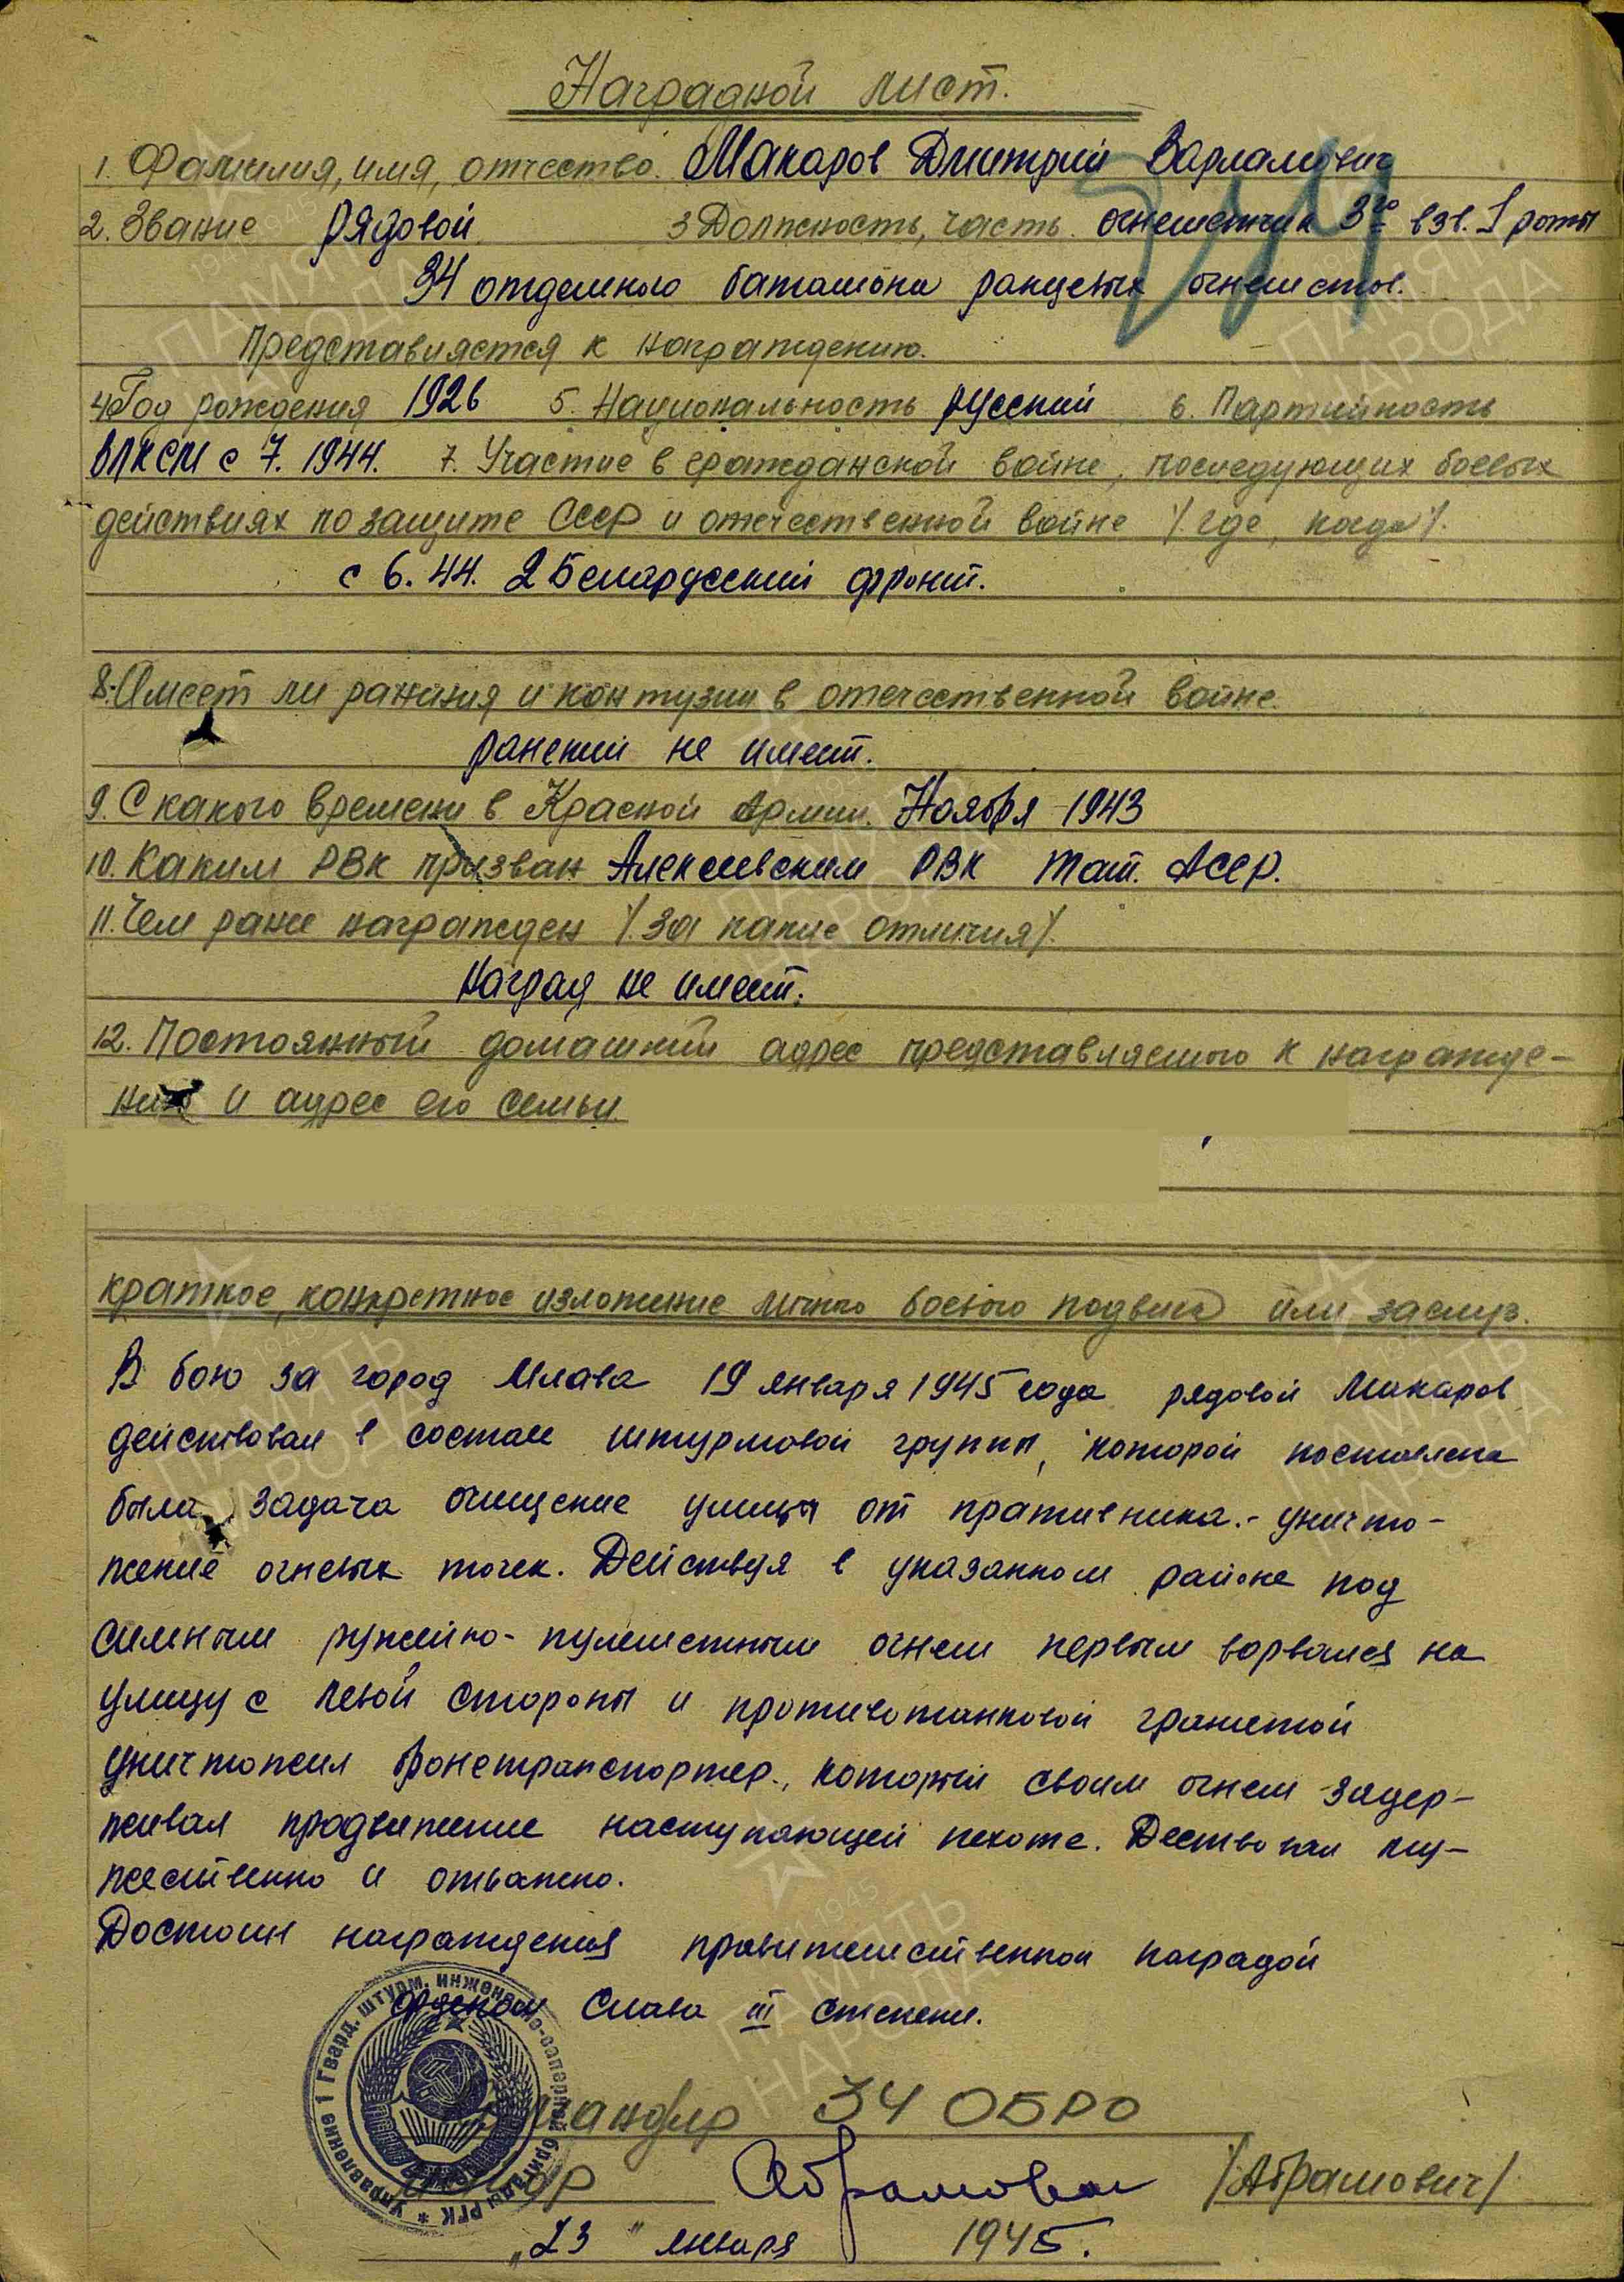 Наградной лист.
1. Фамилия, имя, отчество. Макаров Дмитрий Варламович
2. Звание рядовой 3 Должность, часть. огнеметчик 3го взв. 1 роты
34 отдельного батальона ранцевых огнеметов.
Представляется к награждению.
4. Год рождения 1926 5. Национальность русский 6. Партийность
ВЛКСМ с 7. 1944. 7. Участие в гражданской войне, последующих боевых
действиях по защите СССР и отечественной войне /. где, когда/.
с 6. 44. 2 Беларусский фронт.
8. Имеет ли ранения и контузии в отечественной войне.
ранений не имеет.
9. С какого времени в Красной Армии. Ноября 1943
10. Каким РВК призван Алексеевским РВК Тат. АССР.
11. Чем ранее награжден /. за какие отличия/.
Наград не имеет.
12. Постоянный домашний адрес представляемого к награжде-
нию и адрес его семьи.
краткое, конкретное изложение личного боевого подвига или заслуг.
В бою за город Млава 19 января 1945 года рядовой Макаров
действовал в составе штурмовой группы, которой поставлена
была задача очищение улицы от пративника.- уничто-
жение огневых точек. Действуя в указанном районе под
сильным ружейно-пулеметным огнем первым ворвался на
улицу с левой стороны и противотанковой гранатой
уничтожил бронетранспортер., который своим огнем задер-
живал продвижение наступающей пехоте. Дествовал му-
жественно и отважно.
Достоин награждения правительственной наградой
орденом Слава III степени.
Командир 34 ОБРО
майор Абрамович /Абрамович/
„23" января 1945.
Управление 1 Гвард. штурм. инженерно-саперной бригады РГК *
ПАМЯТЬ
НАРОДА